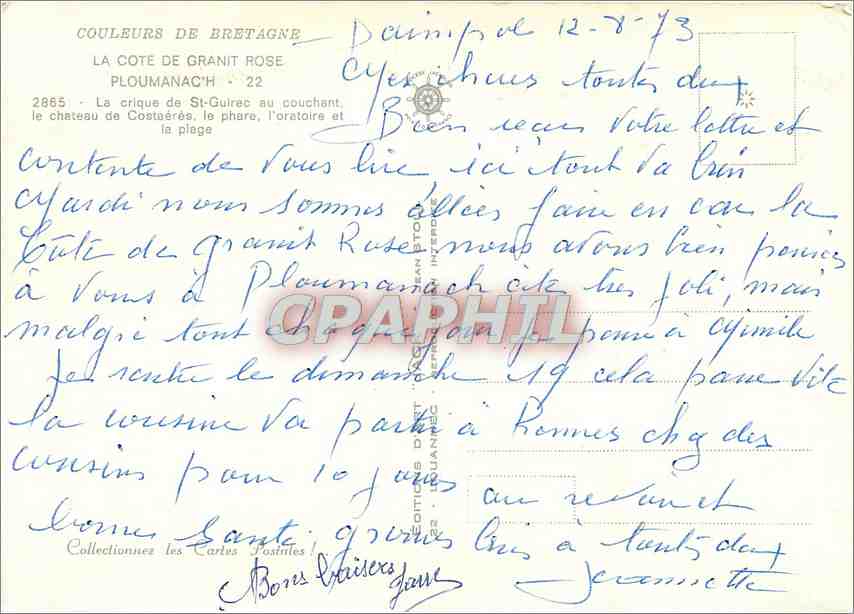 COULEURS DE BRETAGNE
LA COTE DE GRANIT ROSE
PLOUMANAC'H - 22
2865 - La crique de St-Guirec au couchant,
le chateau de Costaérés, le phare, l'oratoire et
la plage
Paimpol 12-8-73
toutes deux
Bien reçu votre lettre et
contente de vous lire, ici tout va bien
Mardi nous sommes allées faire en car la
Côte de granit Rose nous avons bien pensées
à vous à Ploumanach cite tres joli, mais
malgré tout chaque jour je pense à
Je rentre le dimanche 19 cela passe vite
la cousine va partir à Rennes chez des
cousins pour 10 jours
au revoir et
bonne santé grosses bises à toutes deux
Jeannette
Bons baisers
Collectionnez les Cartes Postales !
EDITIONS D'ART "JACK" JEAN STOLL
22 - LOUANNEC - REPRODUCTION INTERDITE
CPAPHIL